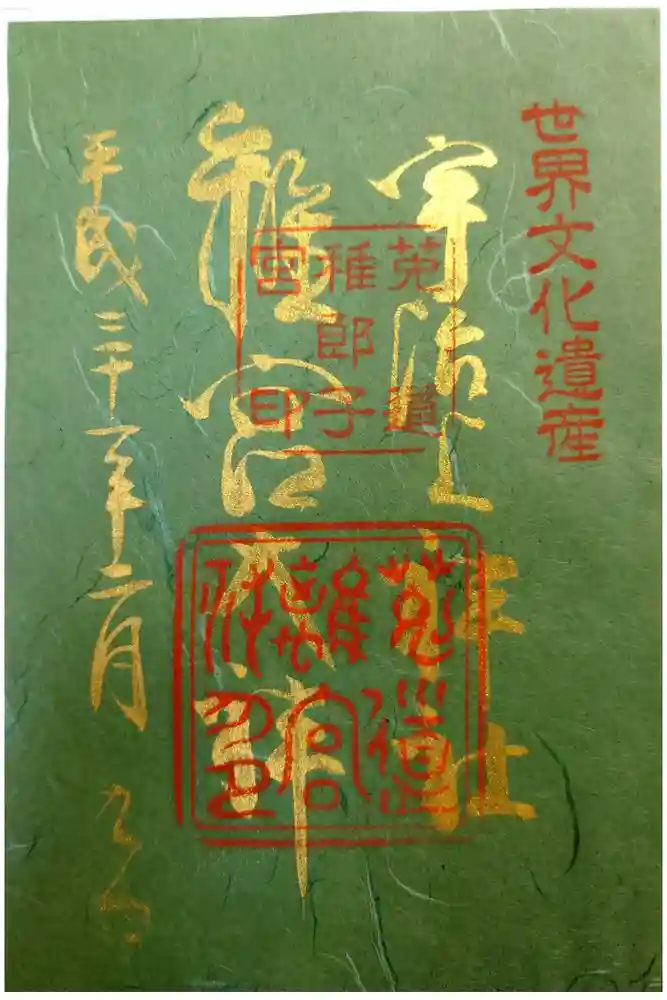 世界文化遺産
宇治上神社
離宮大神
平成三十一年二月
菟道
稚郎子
宮印
菟道
離宮